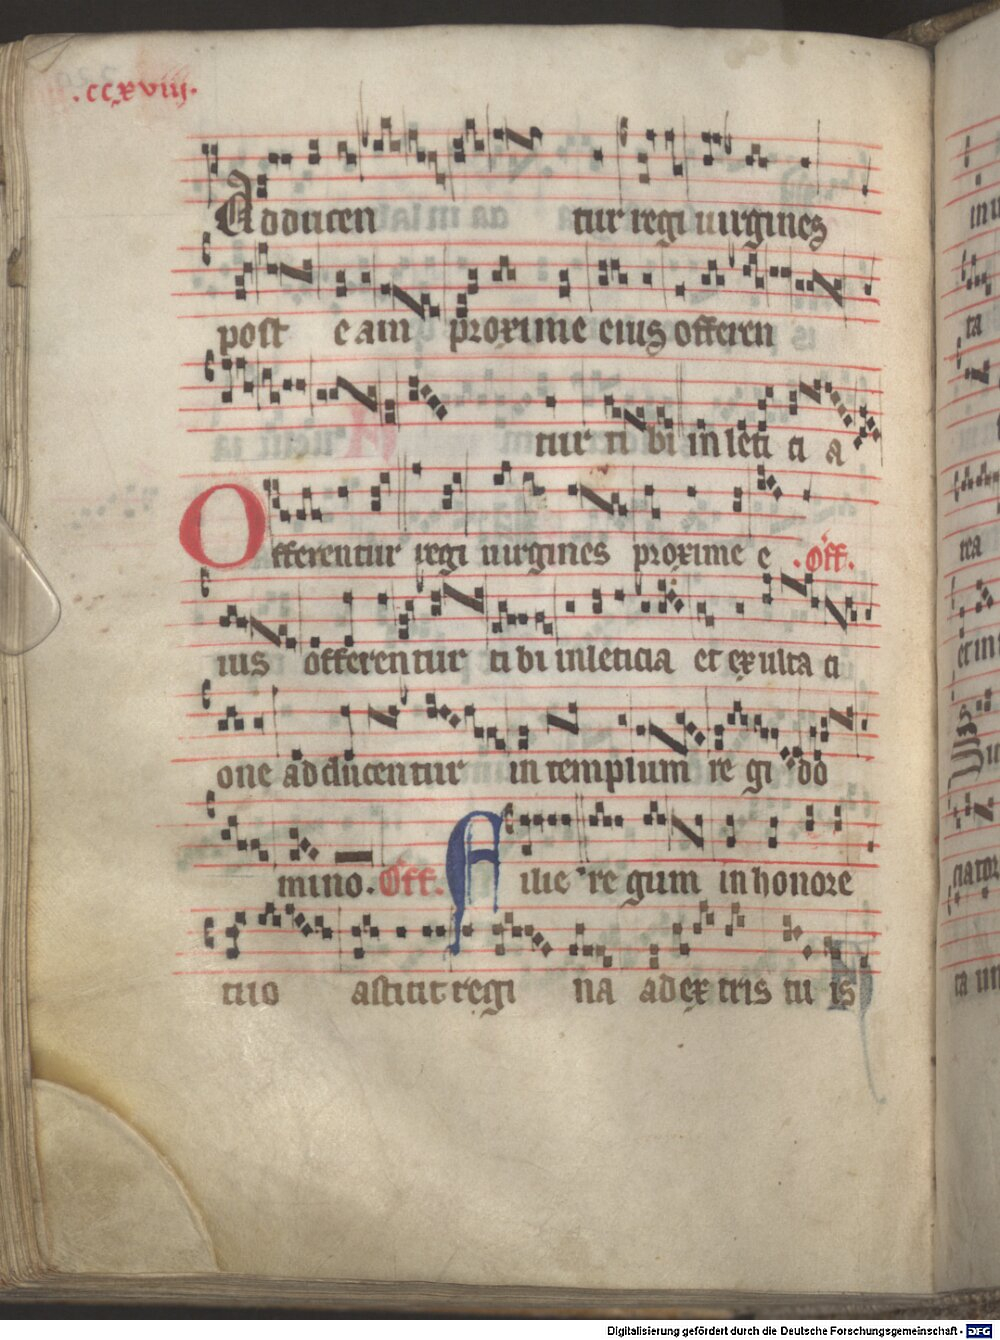 .ccxviij.
Adducen tur regi uirgines
post e am proxime eius offeren
tur ti bi in leti ci a
Offerentur regi uirgines proxime e .Off.
ius offerentur ti bi inleticia et exulta ci
one adducentur in templum re gi do
mino. Off. Filie re gum in honore
tuo astitit regi na adextris tu is
Digitalisierung gefördert durch die Deutsche Forschungsgemeinschaft - DFG